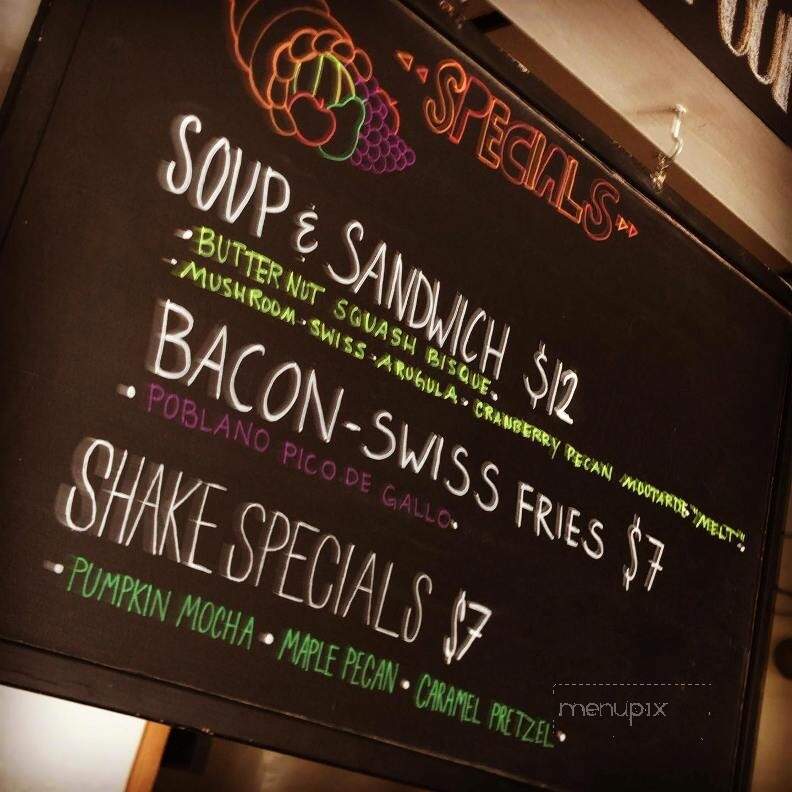 SPECIALS
SOUP & SANDWICH $12
• BUTTERNUT SQUASH BISQUE.
• MUSHROOM • SWISS • ARUGULA • CRANBERRY PECAN MOUTARDE "MELT".
BACON-SWISS FRIES $7
• POBLANO PICO DE GALLO.
SHAKE SPECIALS $7
• PUMPKIN MOCHA • MAPLE PECAN • CARAMEL PRETZEL.
menupix